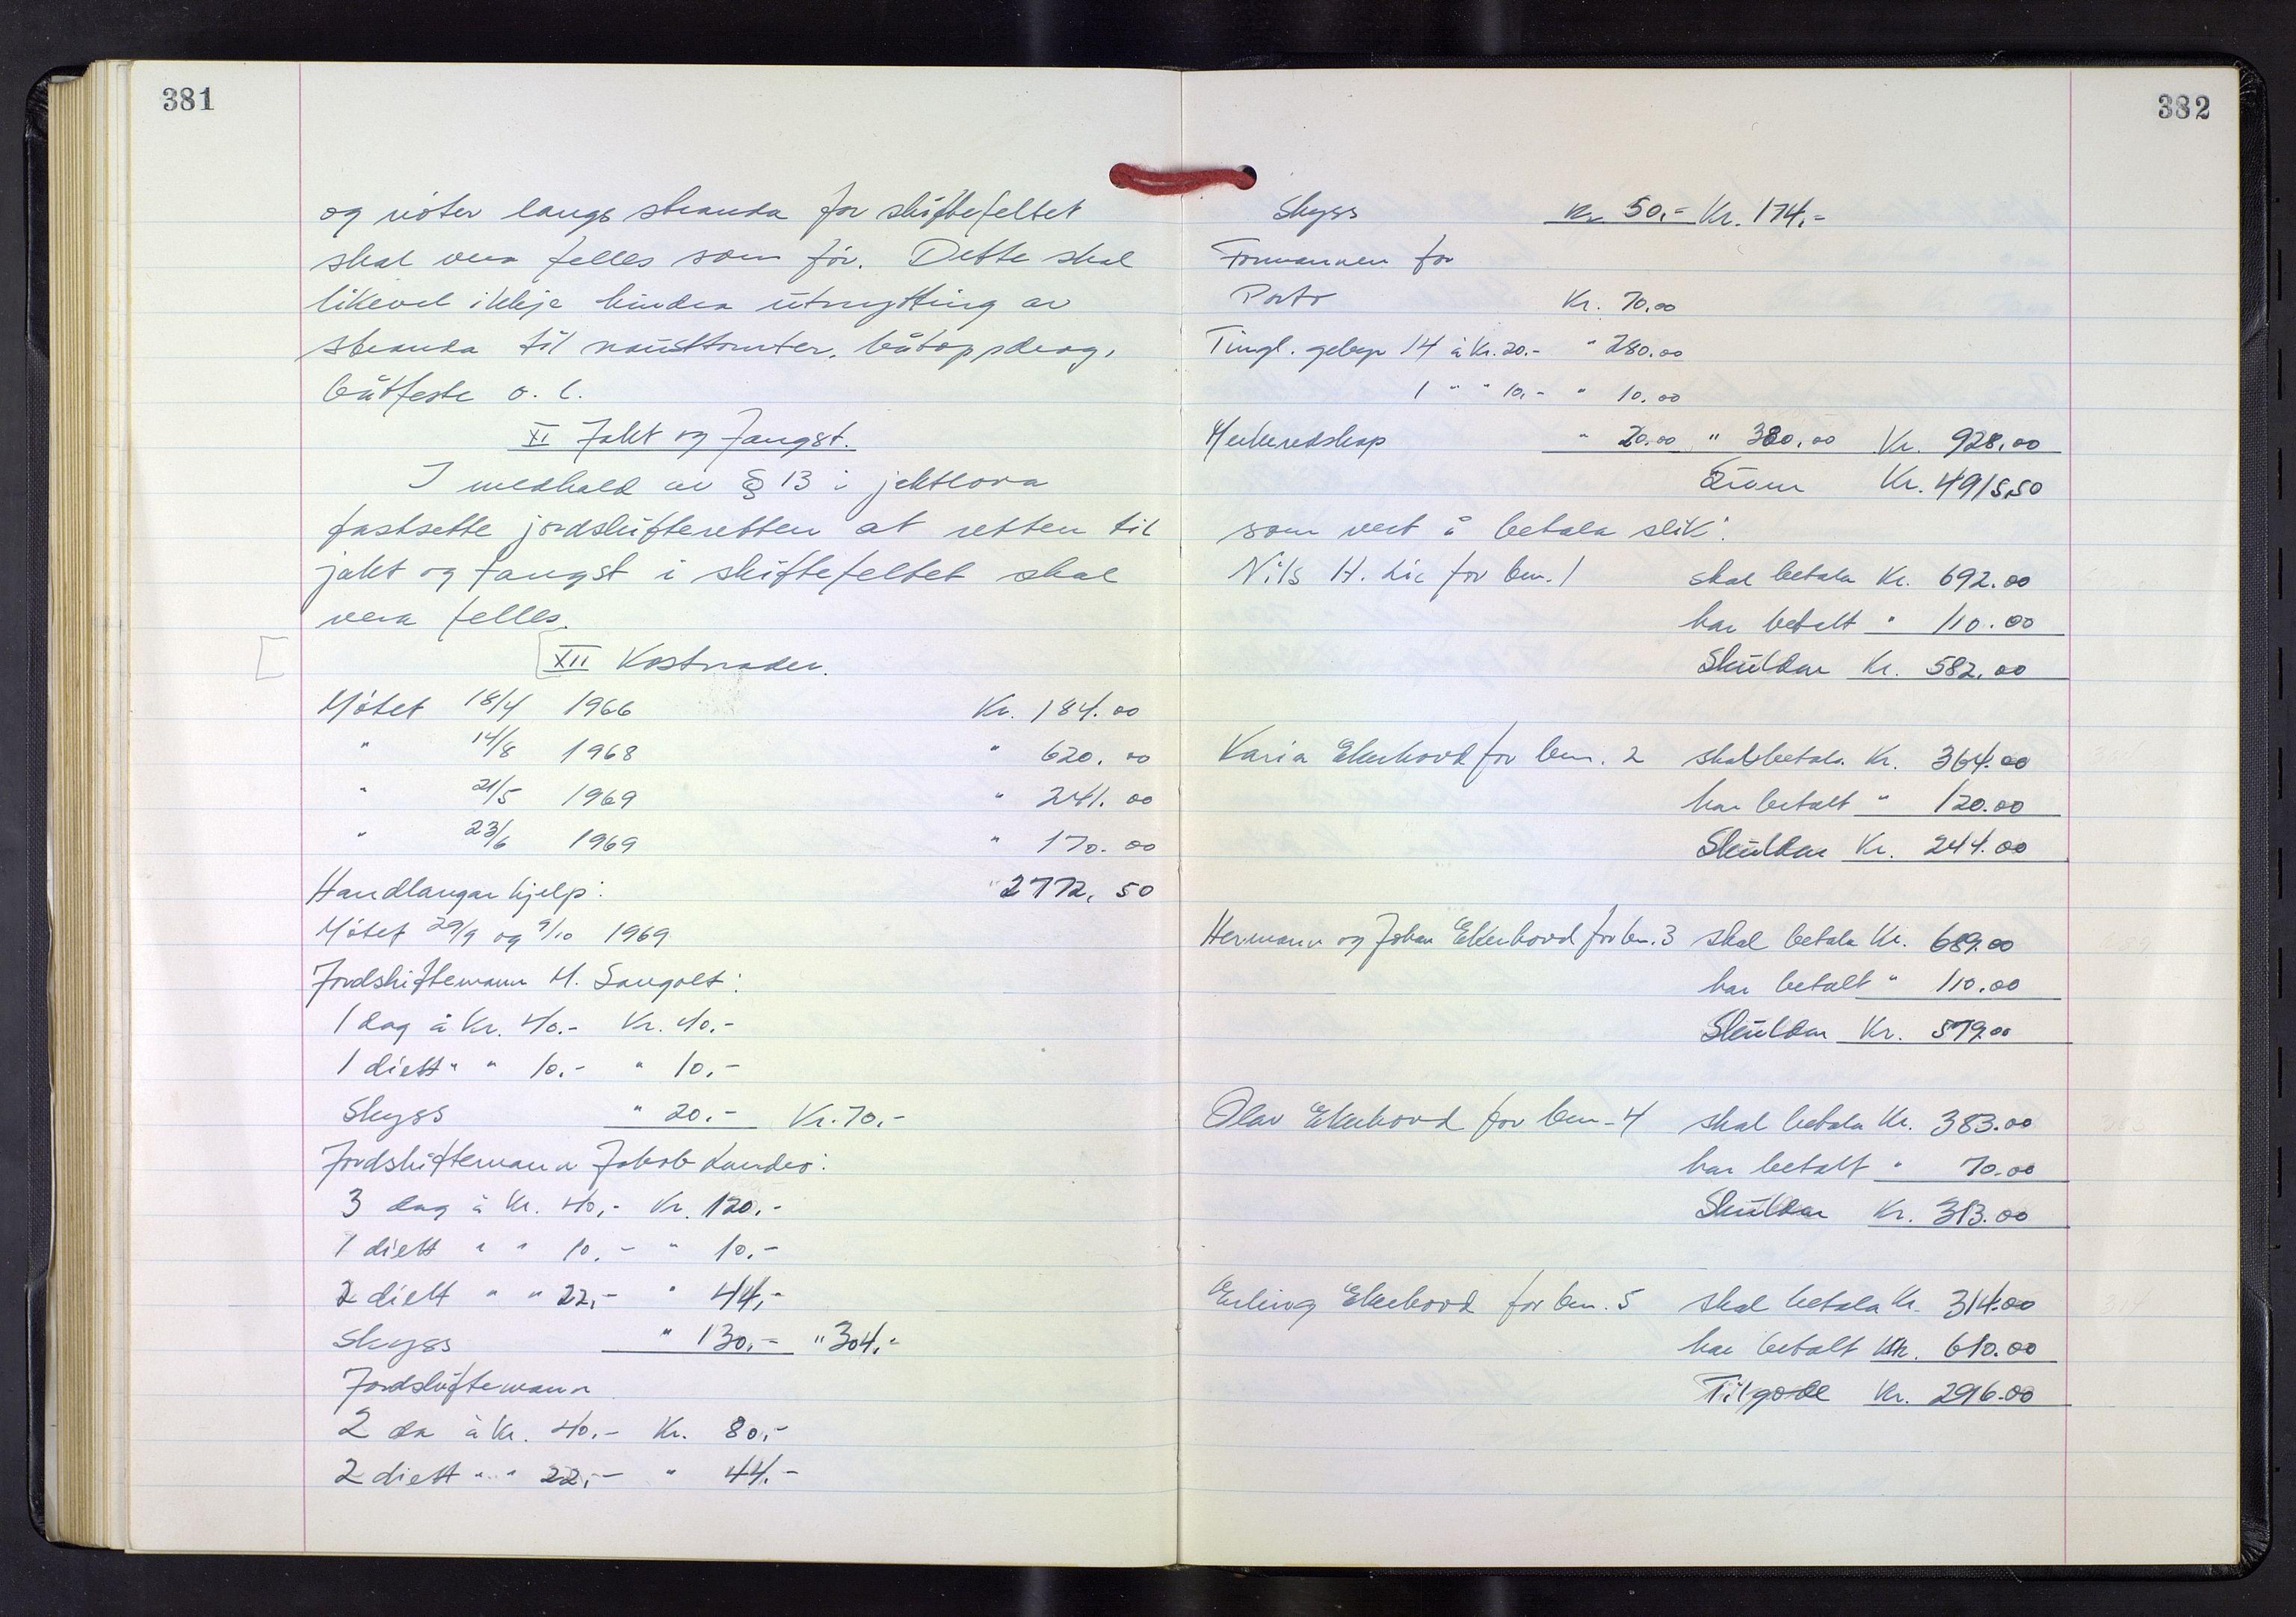 381
og nöter langs stranda for skiftefeltet
skal vera felles som för. Dette skal
likevel ikkje hindra utnytting av
stranda til nausttomter, båtoppdrag,
båtfeste o. l.
XI Jakt og fangst.
I medhald av § 13 i jaktlova
fastsette jordskifteretten at retten til
jakt og fangst i skiftefeltet skal
vera felles.
XII Kostnader.
Mötet 18/4 1966 Kr. 184.00
" 14/8 1968 " 620.00
" 21/5 1969 " 241.00
" 23/6 1969 " 170.00
Handlangarhjelp: " 2772,50
Mötet 29/9 og 9/10 1969
Jordskiftemann M. Sangolt:
1 dag à Kr. 40.- Kr. 40.-
1 diett " " 10.- " 10.-
Skyss " 20.- Kr. 70.-
Jordskiftemann Jakob Landro:
3 dag à Kr. 40,- Kr. 120.-
1 diett " " 10.- " 10.-
2 diett " " 22,- " 44,-
Skyss " 130,- " 304,-
Jordskiftemann
2 da à Kr. 40.- Kr. 80,-
2 diett " " 22,- " 44.-
382
Skyss Kr 50,- Kr. 174,-
Formannen for
Porto Kr. 70.00
Tingl. gebyr 14 à Kr. 20.- " 280.00
1 " " 10,- " 10.00
Merkeredskap " 20.00 " 380.00 Kr. 928,00
Sum Kr. 4915,50
som vert å betala slik:
Nils H. Lie for bnr. 1 skal betala Kr. 692.00
har betalt " 110.00
Skuldar Kr. 582,00
Karia Ekerhovd for bnr. 2 skal betala Kr. 364.00
har betalt " 120.00
Skuldar Kr. 244.00
Hermann og Johan Ekerhovd for bnr. 3 skal betala Kr. 689.00
har betalt " 110.00
Skuldar Kr. 579.00
Olav Ekerhovd for bnr. 4 skal betala Kr. 383.00
har betalt " 70.00
Skuldar Kr. 313.00
Erling Ekerhovd for bnr. 5 skal betala Kr. 314.00
har betalt Kr. 610.00
Tilgode Kr. 296.00